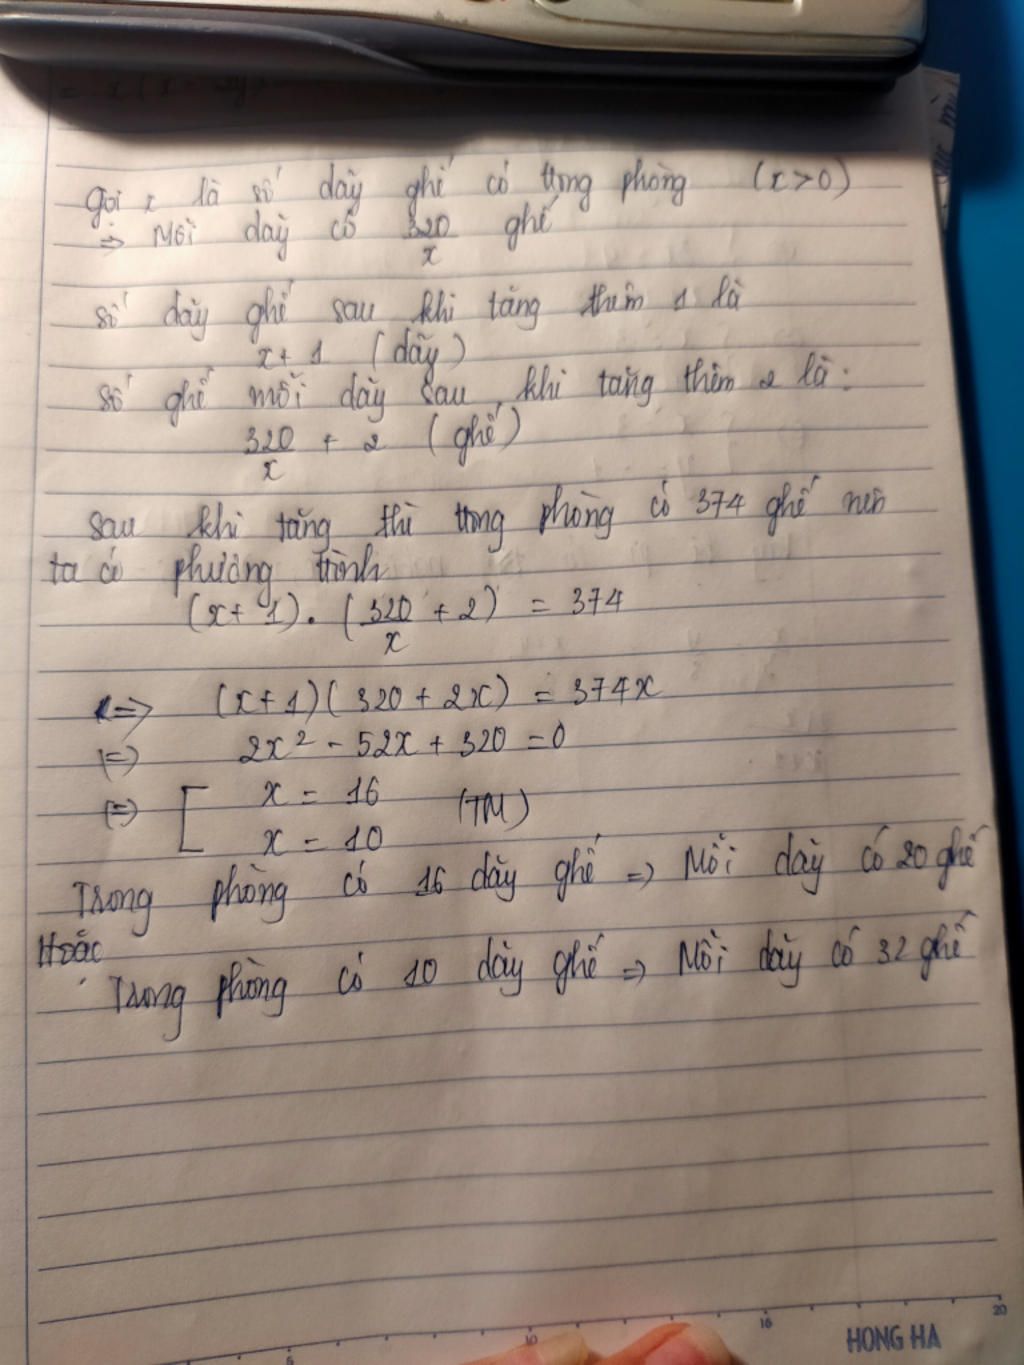 Gọi x là số dãy ghế có trong phòng (x>0)
=> Mỗi dãy có 320/x ghế
số dãy ghế sau khi tăng thêm 1 là
x+ 1 (dãy)
số ghế mỗi dãy sau khi tăng thêm 2 là:
320/x + 2 (ghế)
sau khi tăng thì trong phòng có 374 ghế nên
ta có phương trình
(x+ 1). (320/x + 2) = 374
<=> (x+1)(320+2x) = 374x
<=> 2x² - 52x + 320 = 0
<=> [ x = 16
x = 10 (TM)
Trong phòng có 16 dãy ghế => Mỗi dãy có 20 ghế
Hoặc
Trong phòng có 10 dãy ghế => Mỗi dãy có 32 ghế
5 10 16 20
HONG HA